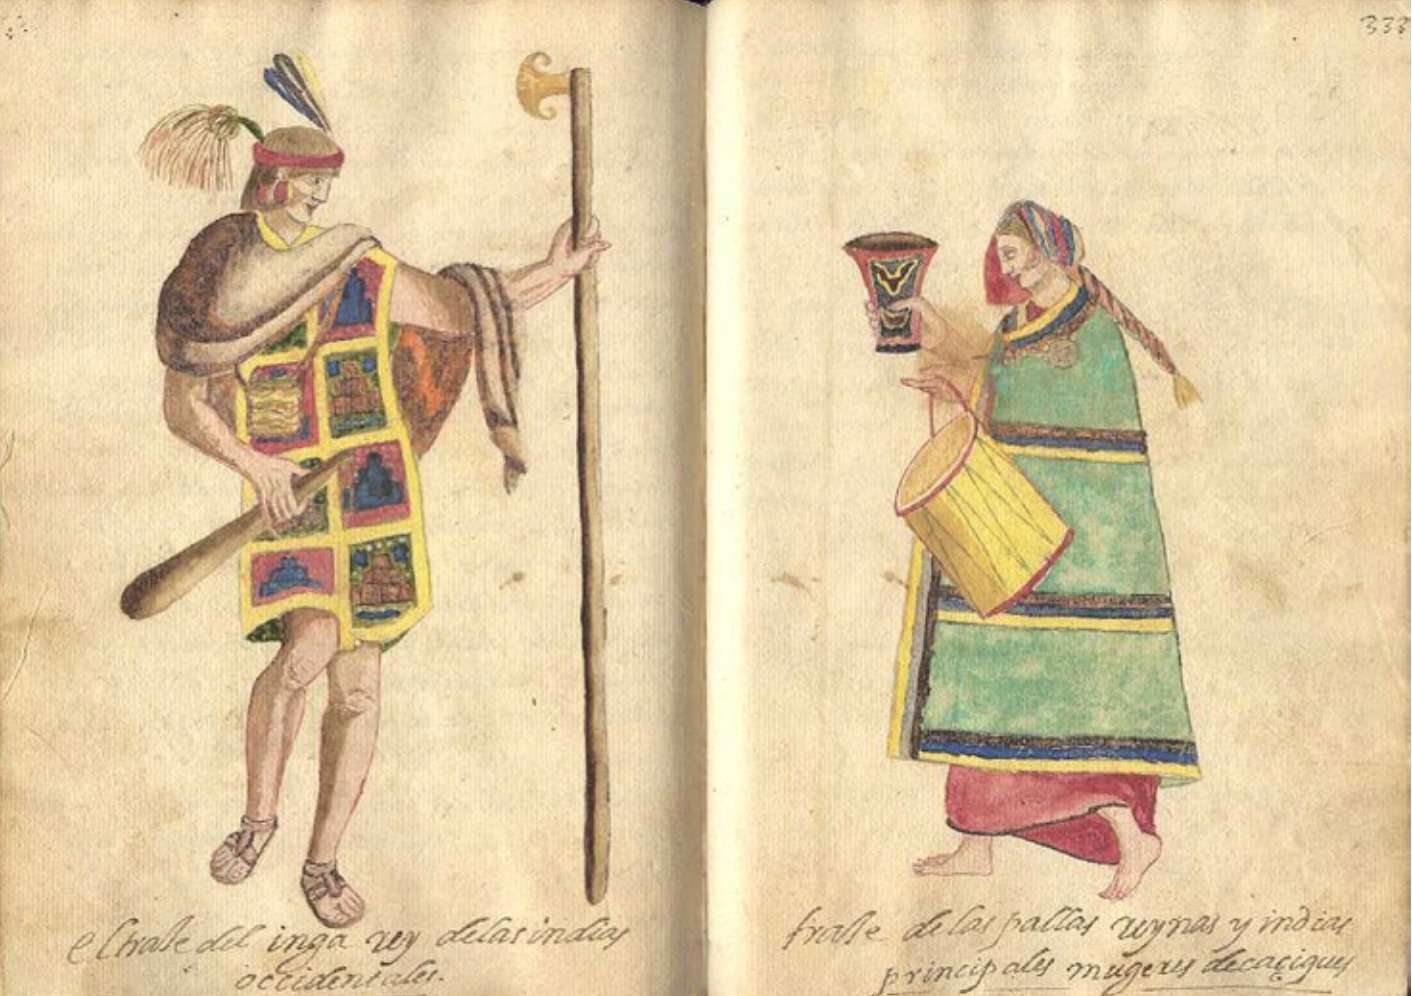 333
el traje del inga rey delas indias
occidentales.
traje de las pallas reynas y indias
principales mugeres decaçiques